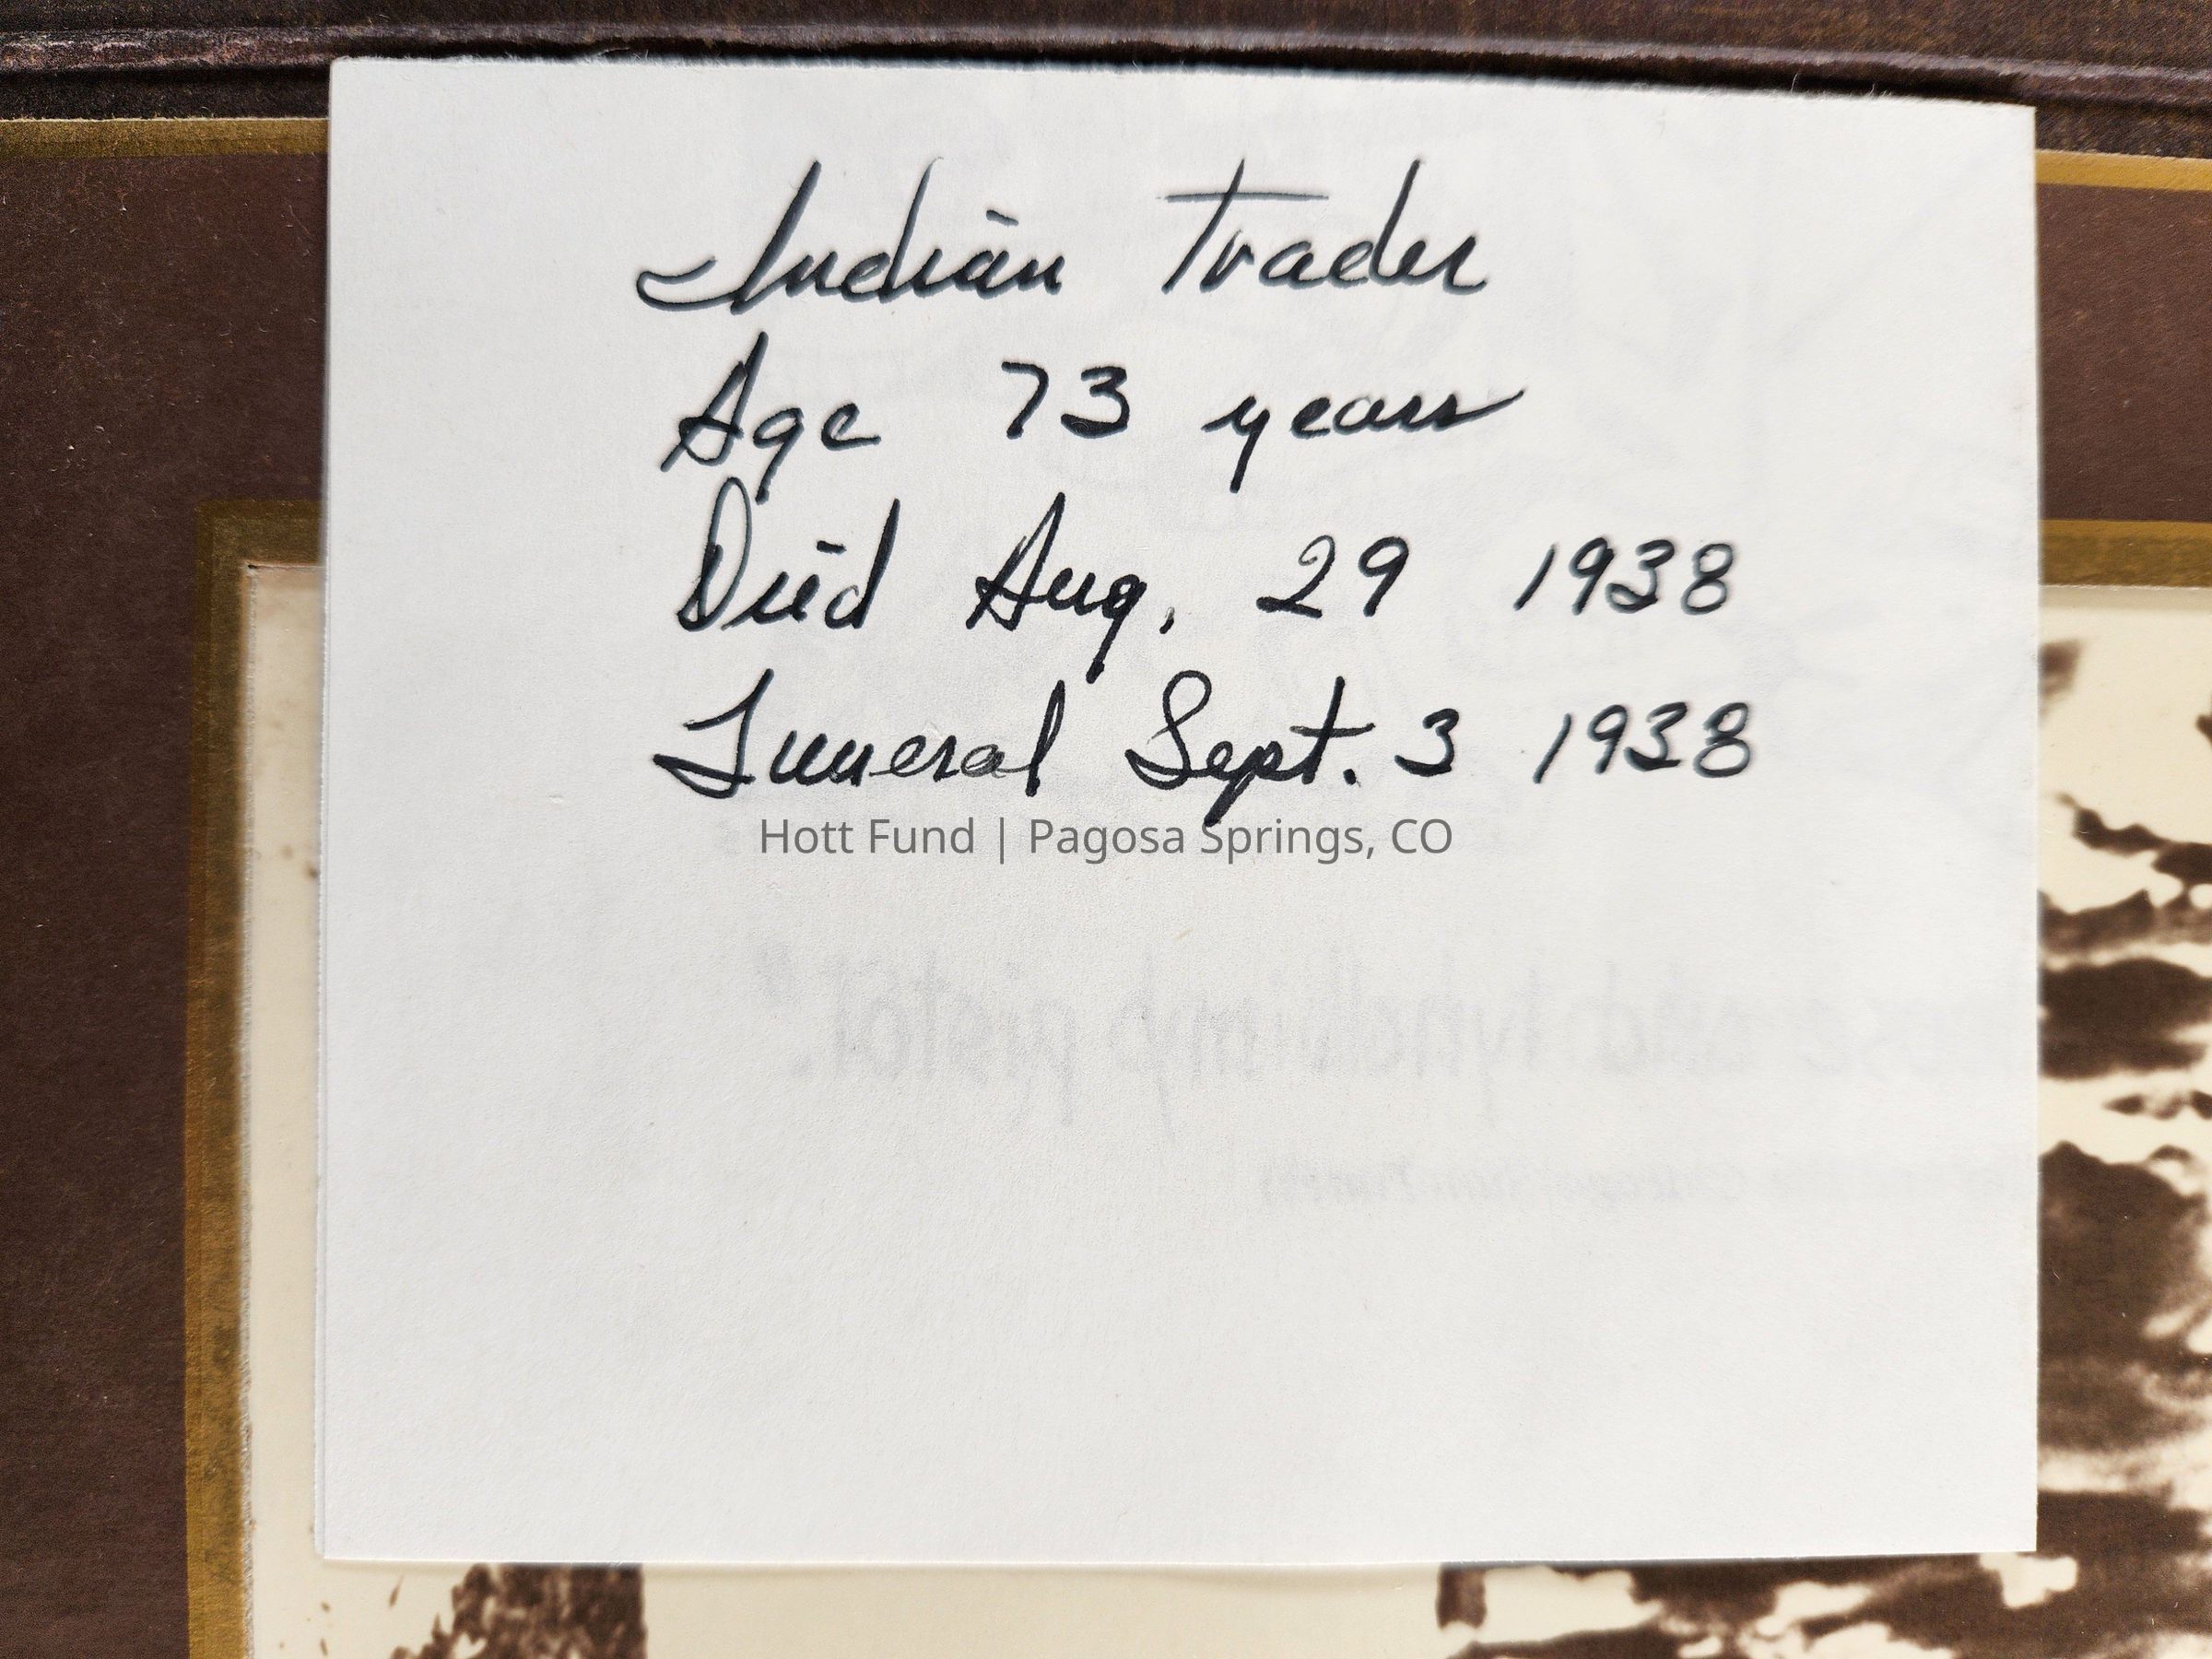 Indian Trader
Age 73 years
Died Aug. 29 1938
Funeral Sept. 3 1938
Hott Fund | Pagosa Springs, CO